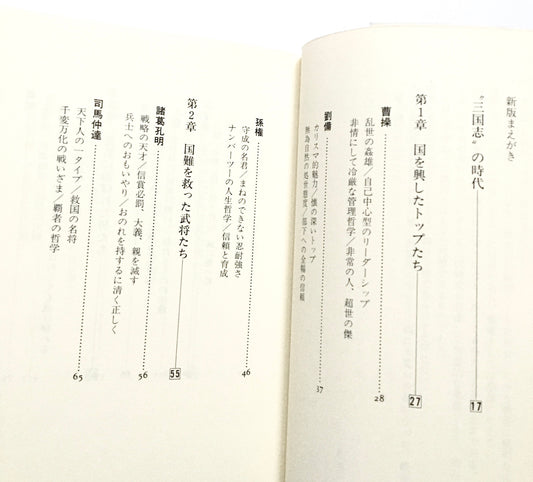 新版まえがき
"三国志"の時代 17
第1章 国を興したトップたち 27
曹操 28
乱世の姦雄/自己中心型のリーダーシップ
非情にして冷厳な管理哲学/非常の人、超世の傑
劉備 37
カリスマ的魅力/懐の深いトップ
無為自然の処世態度/部下への全幅の信頼
孫権 46
守成の名君/まねのできない忍耐強さ
ナンバーツーの人生哲学/信頼と育成
第2章 国難を救った武将たち 55
諸葛孔明 56
戦略の天才/信賞必罰、大義、親を滅す
兵士へのおもいやり/おのれを持するに清く正しく
司馬仲達 65
天下人の一タイプ/救国の名将
千変万化の戦いざま/覇者の哲学